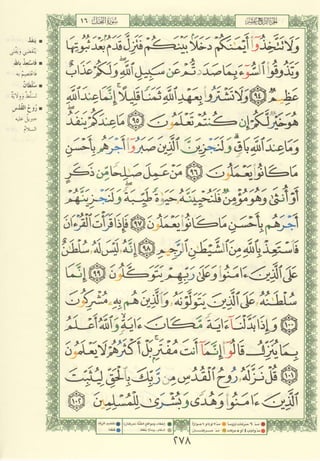 سورة النحل ١٦
الجزء الرابع عشر
وَلَا تَتَّخِذُوٓا۟ أَيْمَـٰنَكُمْ دَخَلًۢا بَيْنَكُمْ فَتَزِلَّ قَدَمٌۢ بَعْدَ ثُبُوتِهَا
وَتَذُوقُوا۟ ٱلسُّوٓءَ بِمَا صَدَدتُّمْ عَن سَبِيلِ ٱللَّهِ وَلَكُمْ عَذَابٌ
عَظِيمٌ ٩٤ وَلَا تَشْتَرُوا۟ بِعَهْدِ ٱللَّهِ ثَمَنًا قَلِيلًا إِنَّمَا عِندَ ٱللَّهِ
هُوَ خَيْرٌ لَّكُمْ إِن كُنتُمْ تَعْلَمُونَ ٩٥ مَا عِندَكُمْ يَنفَدُ
وَمَا عِندَ ٱللَّهِ بَاقٍ وَلَنَجْزِيَنَّ ٱلَّذِينَ صَبَرُوٓا۟ أَجْرَهُم بِأَحْسَنِ
مَا كَانُوا۟ يَعْمَلُونَ ٩٦ مَنْ عَمِلَ صَـٰلِحًا مِّن ذَكَرٍ
أَوْ أُنثَىٰ وَهُوَ مُؤْمِنٌ فَلَنُحْيِيَنَّهُۥ حَيَوٰةً طَيِّبَةً وَلَنَجْزِيَنَّهُمْ
أَجْرَهُم بِأَحْسَنِ مَا كَانُوا۟ يَعْمَلُونَ ٩٧ فَإِذَا قَرَأْتَ ٱلْقُرْءَانَ
فَٱسْتَعِذْ بِٱللَّهِ مِنَ ٱلشَّيْطَـٰنِ ٱلرَّجِيمِ ٩٨ إِنَّهُۥ لَيْسَ لَهُۥ سُلْطَـٰنٌ
عَلَى ٱلَّذِينَ ءَامَنُوا۟ وَعَلَىٰ رَبِّهِمْ يَتَوَكَّلُونَ ٩٩ إِنَّمَا
سُلْطَـٰنُهُۥ عَلَى ٱلَّذِينَ يَتَوَلَّوْنَهُۥ وَٱلَّذِينَ هُم بِهِۦ مُشْرِكُونَ
١٠٠ وَإِذَا بَدَّلْنَآ ءَايَةً مَّكَانَ ءَايَةٍ وَٱللَّهُ أَعْلَمُ
بِمَا يُنَزِّلُ قَالُوٓا۟ إِنَّمَآ أَنتَ مُفْتَرٍۭ بَلْ أَكْثَرُهُمْ لَا يَعْلَمُونَ
١٠١ قُلْ نَزَّلَهُۥ رُوحُ ٱلْقُدُسِ مِن رَّبِّكَ بِٱلْحَقِّ لِيُثَبِّتَ
ٱلَّذِينَ ءَامَنُوا۟ وَهُدًى وَبُشْرَىٰ لِلْمُسْلِمِينَ ١٠٢
٢٧٨